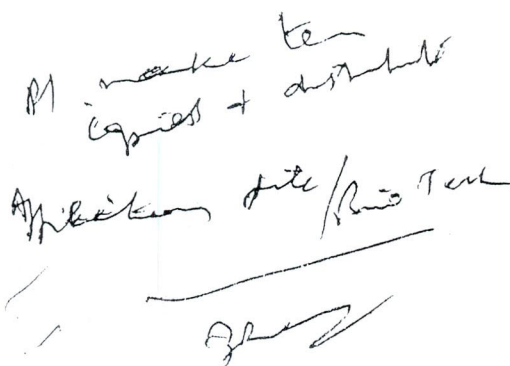 Pl make ten
copies + distribute
Affiliation file/Bio Tech